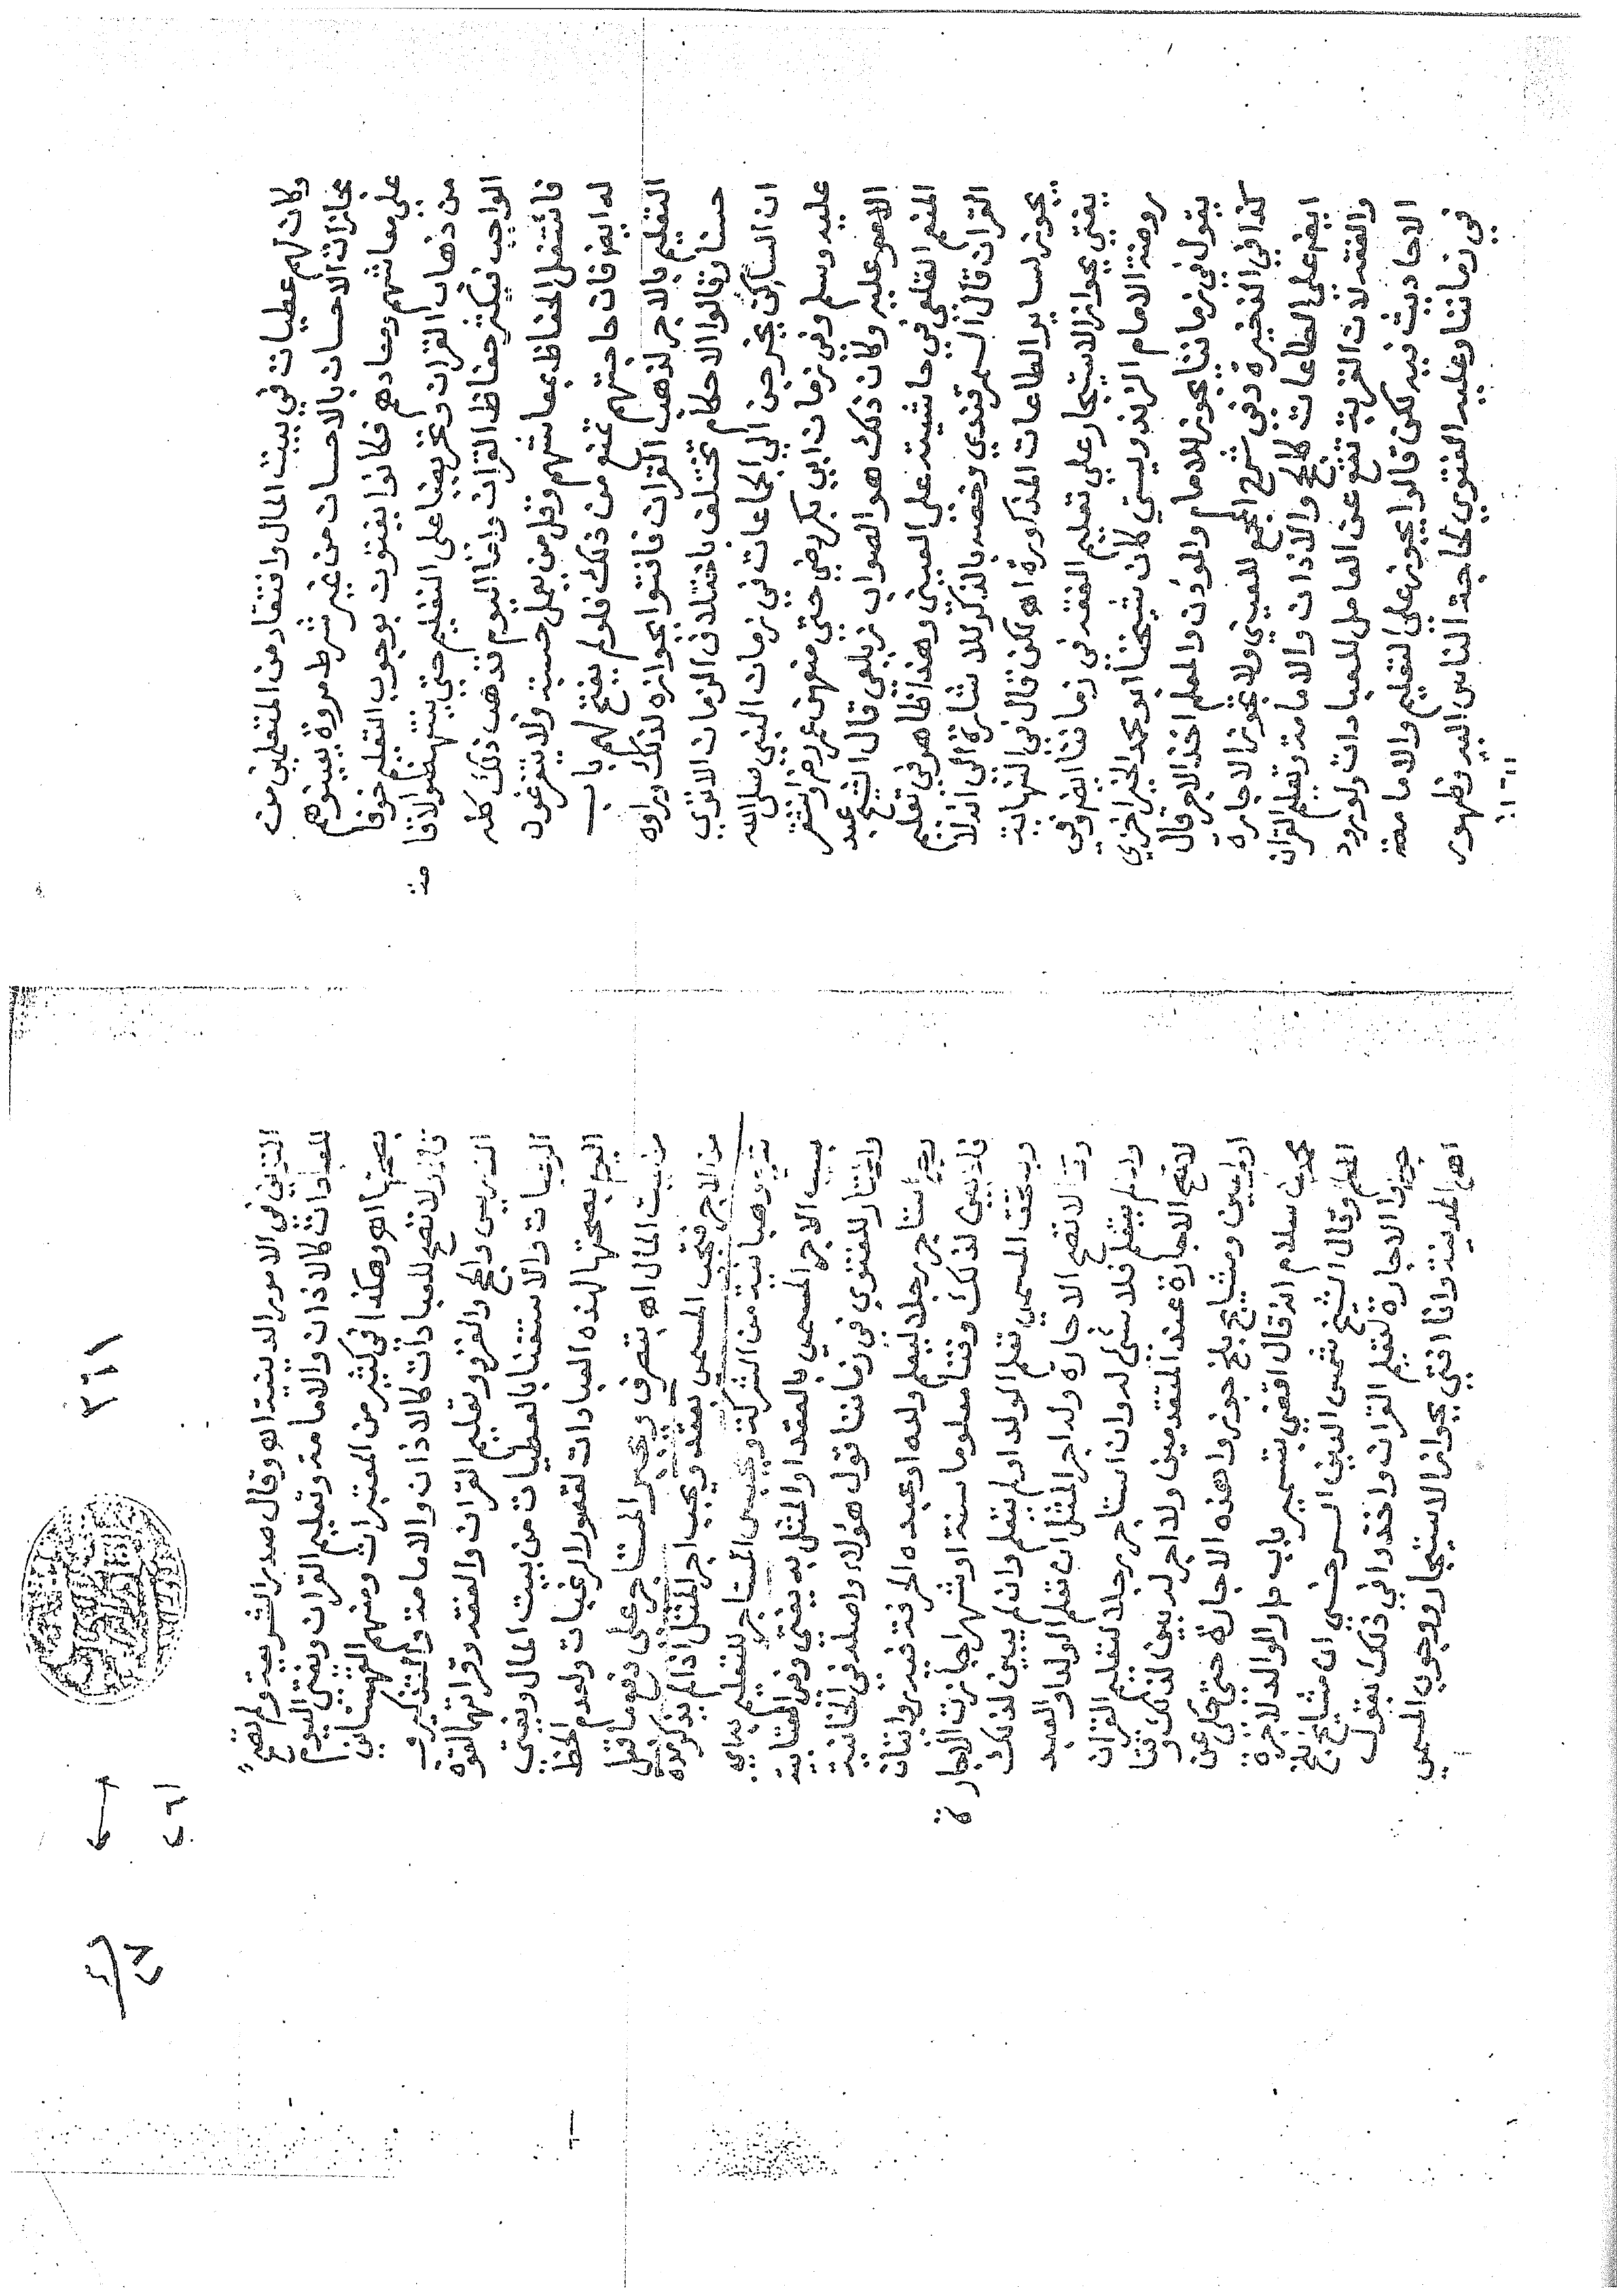 وكان لهم عطيات في بيت المال وافتقاد من المتعلمين من
مجازات الاحسان بالاحسان من غير شرط مروة يعينوهم
على معاشهم ومعادهم فكانوا يفتون بوجوب التعليم خوفا
من ذهاب القران وتحريضا على التعليم حتى ينتهضوا لاقا
مة
الواجب فيكثر حفاظ القران واما اليوم فذهب ذلك كله
فاشتغل الحفاظ بمعاشهم وقل من يعمل حسبة ولا يتفرغون
له ايض فان حاجتهم تمنع من ذلك فلو لم يفتح لهم باب
التعليم بالاجر لذهب القران فافتوا بجوازه لذلك وراوه
حسنا وقالوا الاحكام تختلف باختلاف الزمان الا ترى
ان النسا كن يخرجن الى الجماعات في زمان النبي صلى الله
عليه وسلم وفي زمان ابي بكر رضي حتى منعهن عمر رض واستقر
الامر عليه وكان ذلك هو الصواب زيلعي قال الشيخ عبد
المنعم القلعي في حاشيته على العيني وهذا ظاهر في تعليم
القران قال السمرقندي وخصه بالذكر للاشارة الى انه لا
يجوز لساير الطاعات المذكورة اهـ لكن قال في النهاية
يفتي بجواز الاستيجار على تعليم الفقه في زماننا ايض وفي
روضة الامام الزندويستي كان شيخنا ابو محمد الخيزاخزي
يقول في زماننا يجوز للامام والموذن والمعلم اخذ الاجر قال
كذا في الذخيرة وفي شرح المجمع للعيني ولا تجوز الاجارة
ايض على الطاعات كالحج والاذان والامامة وتعليم القران
والفقه لان القربة تقع عن العامل للعبادات ولورود
الاحاديث فيه لكن قالوا يجوز على التعليم والامامة
في زماننا وعليه الفتوى لحاجة الناس اليه وظهور
٣٦١
٣٦١
في الامور الدينية اهـ وقال صدر الشريعة ولم تصح
للعبادات كالاذان والامامة وتعليم القران ويفتى اليوم
بصحتها اهـ وهكذا في كثير من المعتبرات ومنهم القهستاني
لا تصح للعبادات كالاذان والامامة والتذكير و
التدريس والحج والغزو وتعليم القران والفقه وقراتهما لقوة
الرغبات والاستغنا بالعطيات من بيت المال ويفتى
اليوم بصحتها لهذه العبادات لفتور الرغبات ولعدم الحظ
من بيت المال اهـ بتصرف ويجبر المستاجر على دفع ما قبل
من الاجر فيجب المسمى بعقد ويجب اجر المثل اذا لم يذكر مدة
من الشركة ويحبس المستاجر للتعليم
بسبب الاجر المسمى بالعقد او المثل به يفتى وفي العتابية
واختار للفتوى في زماننا قول هؤلاء واصله في الخانية
رجل استاجر رجلا ليعلم ولده او عبده الحرفة فيه روايتان
فان بين لذلك وقتا معلوما سنة او شهرا جازت الاجار
ة
ويستحق المسمى تعلم الولد او لم يتعلم وان لم يبين لذلك
وقتا لا تصح الاجارة وله اجر المثل ان تعلم الولد او العبد
وان لم يتعلم فلا شئ له وان استاجر رجلا لتعليم القران
لا تصح الاجارة عند المتقدمين ولا اجر له بين لذلك وقتا
او لم يبين ومشايخ بلخ جوزوا هذه الاجارة حتى حكى عن
محمد بن سلام انه قال اقضي بتسمير باب دار الوالد لاجرة
المعلم وقال الشيخ شمس الدين السرخسي ان مشايخ بلخ
جوزوا الاجارة لتعليم القران واخذوا في ذلك بقول
اهل المدينة وانا افتى بجواز الاستيجار ووجوب المسمى